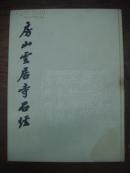 房山雲居寺石经